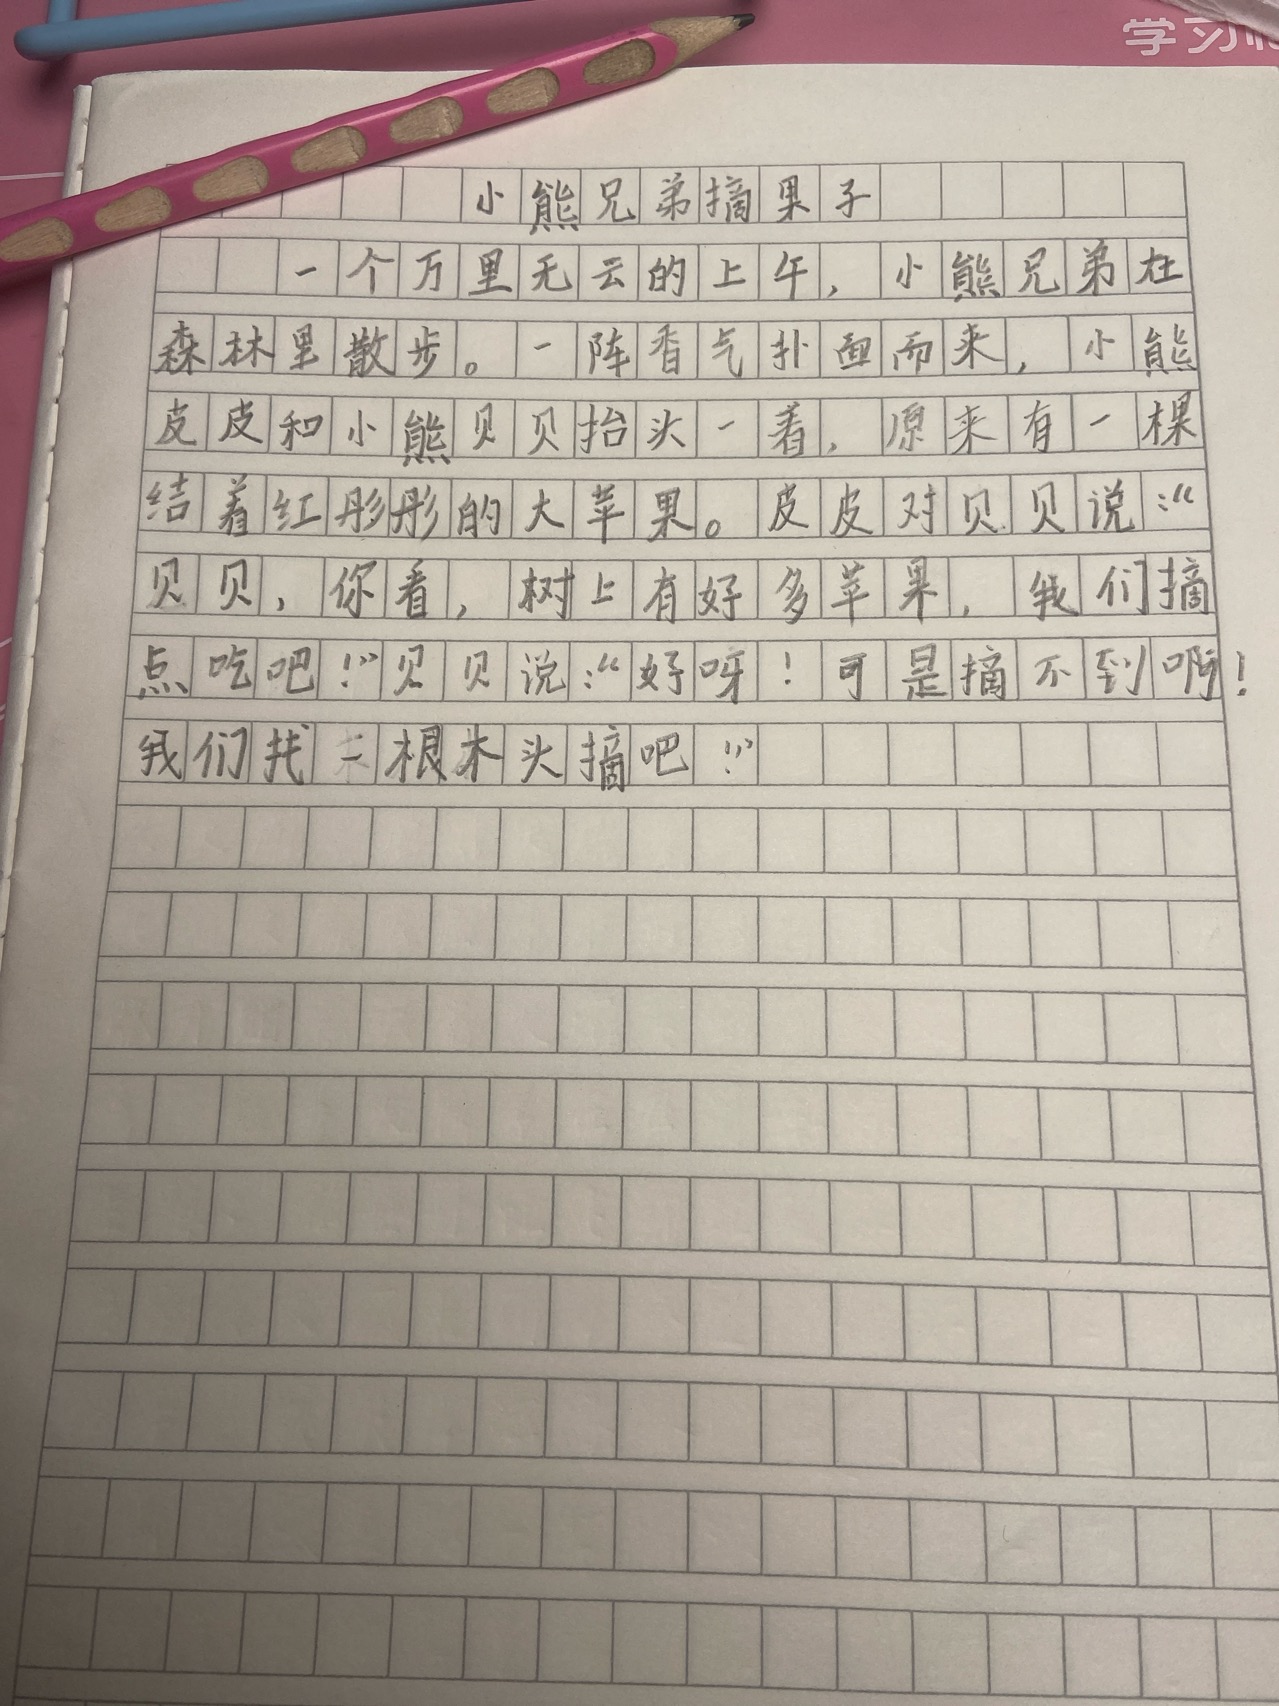 学习
小熊兄弟摘果子
一个万里无云的上午，小熊兄弟在
森林里散步。一阵香气扑面而来，小熊
皮皮和小熊贝贝抬头一着，原来有一棵
结着红彤彤的大苹果。皮皮对贝贝说：“
贝贝，你看，树上有好多苹果，我们摘
点吃吧！”贝贝说：“好呀！可是摘不到啊！
我们找二根木头摘吧！”